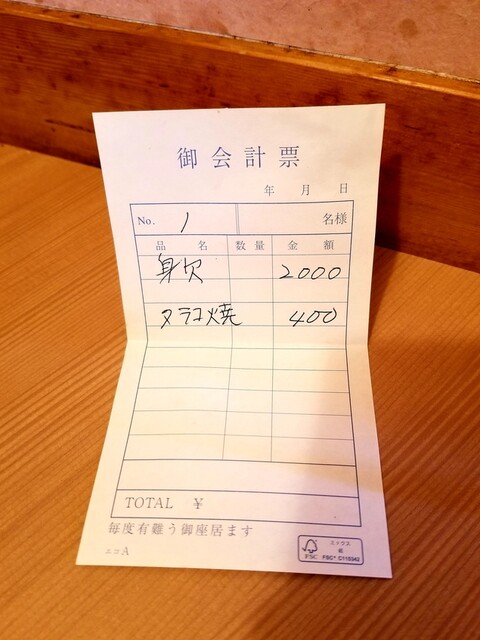 御会計票
年 月 日
No. 1 名様
品 名 数量 金 額
身欠 2000
タラコ焼 400
TOTAL ¥
毎度有難う御座居ます
ニコA
FSC
ミックス
紙
FSC® C115342